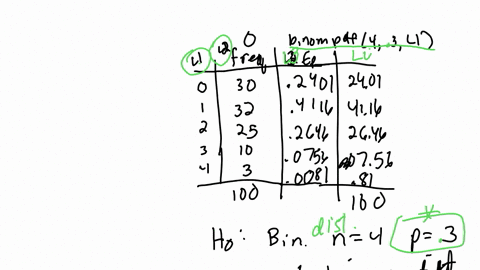 O binompdf(4, .3, L1)
L1 L2 freq Ep L4
0 30 .2401 24.01
1 32 .4116 41.16
2 25 .2646 26.46
3 10 .0756 07.56
4 3 .0081 .81
100 100
Ho: Bin. dist. n=4 p=.3